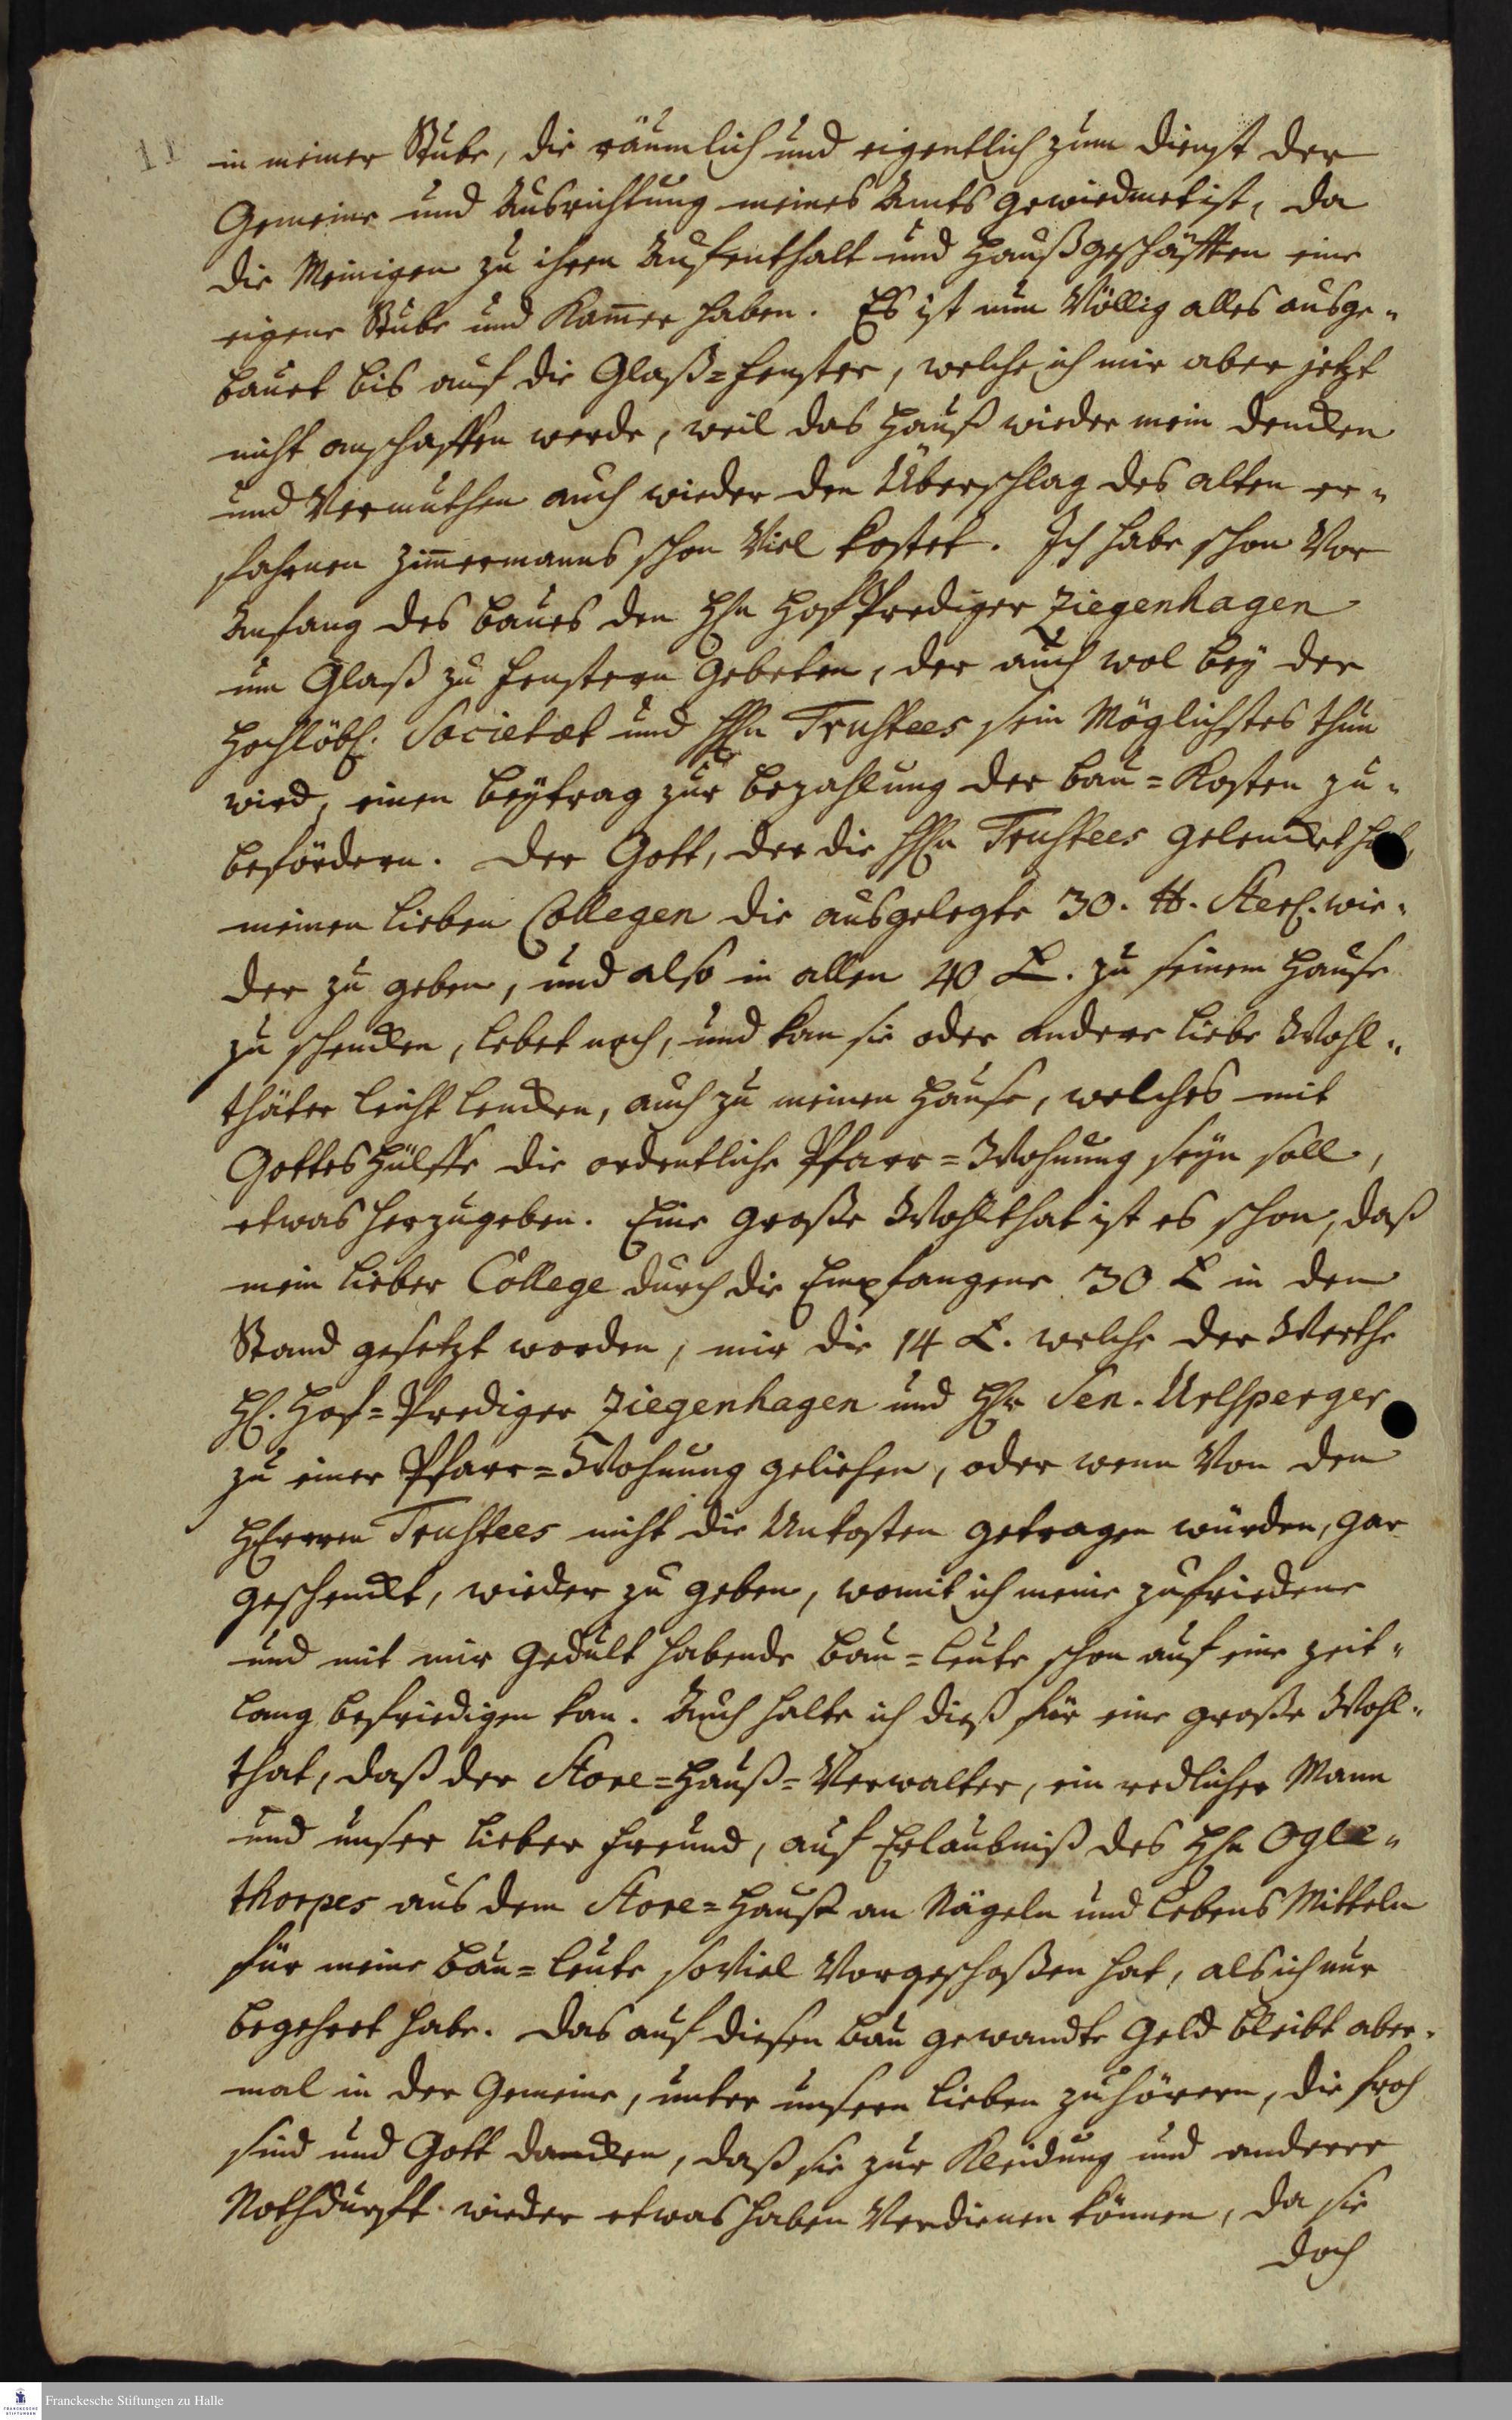 in meiner Stube, die räumlich und eigentlich zum Dienst der
Gemeine und Ausrichtung meines Amts gewiedmet ist, da
die Meinigen zu ihrem Aufenthalt und Haußgeschäfften eine
eigene Stube und Kam̅er haben. Es ist nun Völlig alles ausge„
bauet bis auf die Glaß=Fenster, welche ich mir aber jetzt
nicht anschaffen werde, weil das Hauß wieder mein dencken
und Vermuthen auch wieder den Überschlag des alten er„
fahrnen Zim̅ermanns schon Viel kostet. Ich habe schon Vor
Anfang des Baues den Hℏn Hof Prediger Ziegenhagen
um Glaß zu Fenstern gebeten, der auch wol bey der
Hochlöbl. Societæt und HHn Trustees sein Möglichstes thun
wird, einen Beytrag zur Bezahlung der Bau=Kosten zu„
befördern. Der Gott, der die HHn Trustees gelencket hat,
meinen lieben Collegen die ausgelegte 30. ℔. Sterl. wie„
der zu geben, und also in allen 40 £. zu seinem Hause
zu schencken, lebet noch, und kan sie oder andere liebe Wohl„
thäter leicht lencken, auch zu meinen Hause, welches mit
Gottes Hülffe die ordentliche Pfarr=Wohnung seyn soll,
etwas herzugeben. Eine große Wohlthat ist es schon, daß
mein lieber College durch die Empfangene 30 £ in den
Stand gesetzt worden, mir die 14 £. welche der Werthe
Hℏ. Hof=Prediger Ziegenhagen und Hℏr Sen. Urlsperger
zu einer Pfarr=Wohnung geliehen, oder wenn Von den
HHerren Trustees nicht die Unkosten getragen würden, gar
geschenckt, wieder zu geben, womit ich meine zufriedene
und mit mir Gedult habende Bau=Leute schon auf eine Zeit„
lang befriedigen kan. Auch halte ich dieß für eine große Wohl„
that, daß der Store=Hauß=Verwalter, ein redlicher Mann
und unser lieber Freund, auf Erlaubniß des Hℏn Ogle„
thorpes aus dem Store=Hauße an Nägeln und Lebens Mitteln
für meine Bau=Leute so viel Vorgeschoßen hat, als ich nur
begehret habe. Das auf diesen Bau gewandte Geld bleibt aber„
mal in der Gemeine, unter unsern lieben Zuhörern, die froh
sind und Gott dancken, daß sie zur Kleidung und anderer
Nothdurfft wieder etwas haben Verdienen können, da sie
doch
Franckesche Stiftungen zu Halle